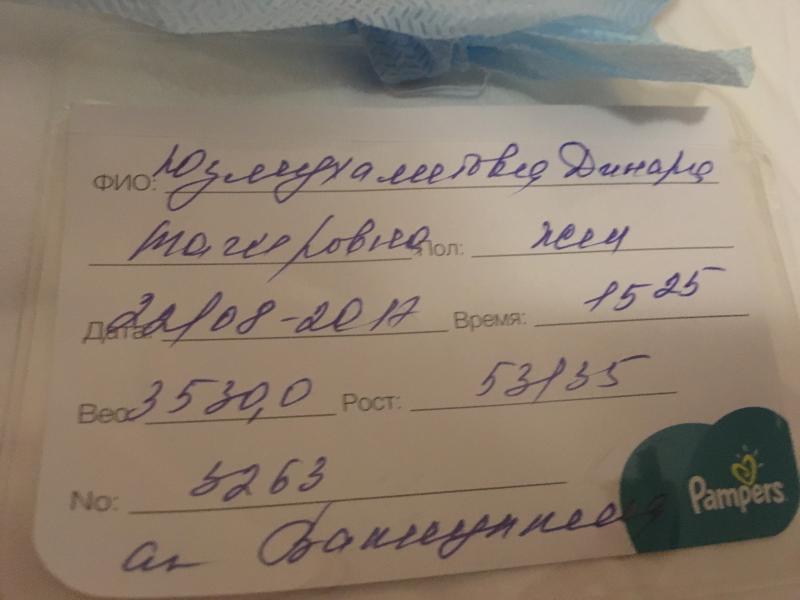 ФИО: Юзмухаметова Динара
Тагировна Пол: жен
Дата: 22/08-2017 Время: 15 25
Вес: 3530,0 Рост: 53/35
No: 5263
Pampers
ак